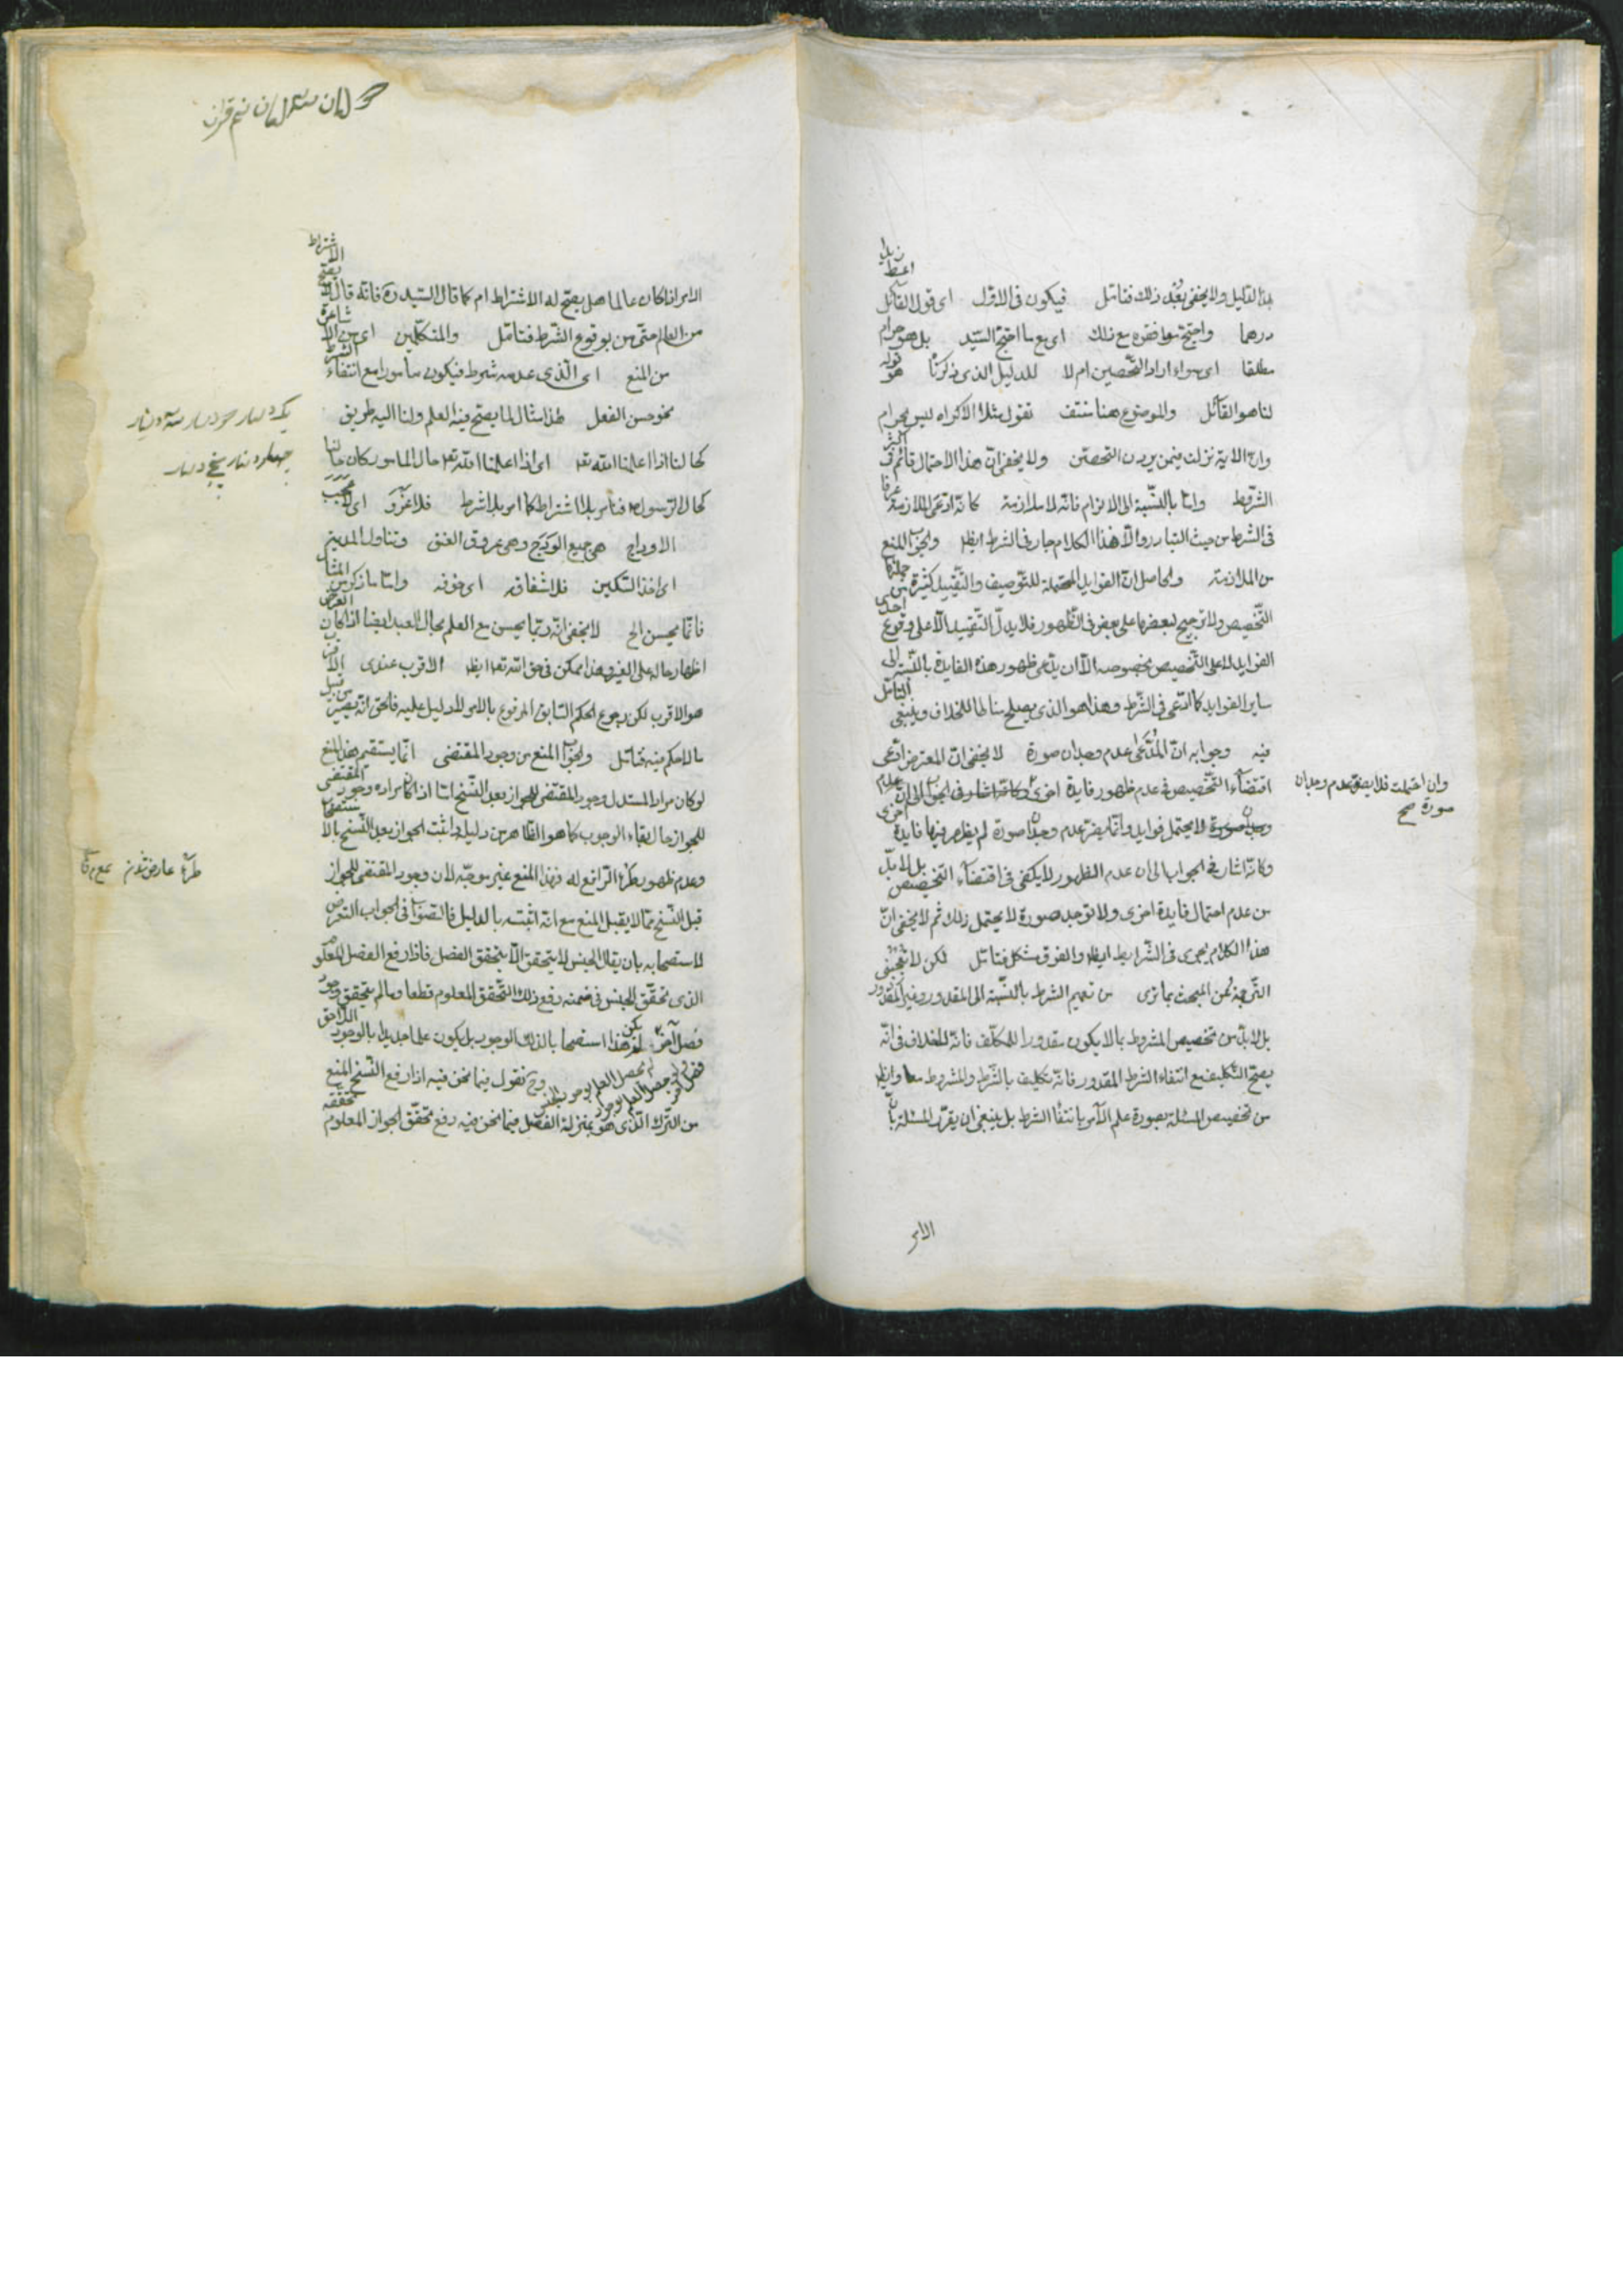 بهذا الدليل ولا يخفى بعد ذلك فتامل فيكون فى الاول اى قول القائل اعط زيدا
درهما واحتج موافقوه مع ذلك اى مع ما احتج السيد بل هو حرام
مطلقا اى سواء اراد التحصين ام لا للدليل الذى ذكرنا هو قوله
لنا هو القائل والموضوع هنا منتف نقول مثلا الاكراه ليس بحرام
وان الاية نزلت فيمن يردن التحصن ولا يخفى ان هذا الاحتمال قائم فى اكثر
الشروط واما بالنسبة الى الالزام فانه لا ملازمة كانه ادعى الملازمة عرفا
فى الشرط من حيث التبادر والا هذا الكلام جار فى الشرط ايضا والجواب المنع
من الملازمة والحاصل ان الفوايد المحتملة للتوصيف والتقييد كثيرة من جملتها
التخصيص ولا ترجيح لبعضها على بعض فى الظهور فلا يدل التقييد الا على وقوع احدى
الفوايد لا على التخصيص بخصوصه الا ان يدعى ظهور هذه الفايدة بالنسبة الى
ساير الفوايد كما ادعى فى الشرط وهذا هو الذى يصلح مناطا للخلاف وينبغى التامل
فيه وجوابه ان المدعى عدم وجدان صورة لا يخفى ان المعترض ادعى
اقتضاء التخصيص فى عدم ظهور فايدة اخرى وكانه اشار فى الجواب الى ان عدم
وجدان صورة لا يحتمل فوايد وانما يضر عدم وجدان صورة لم يظهر فيها فايدة اخرى
وان احتملت فلا يضر عدم وجدان
صورة صح
وكانه اشار فى الجواب الى ان عدم الظهور لا يكفى فى اقتضاء التخصيص بل لا بد
من عدم احتمال فايدة اخرى ولا توجد صورة لا يحتمل ذلك ثم لا يخفى ان
هذا الكلام يجرى فى الشرايط ايضا والفرق مشكل فتامل لكن لا تعجبنى
الترجمة عن المبحث بما ترى من تعميم الشرط بالنسبة الى المقدور وغير المقدور
بل لا بد من تخصيص المشروط بما لا يكون مقدورا للمكلف فانه لا خلاف فى انه
يصح التكليف مع انتفاء الشرط المقدور فانه تكليف بالشرط والمشروط معا وايضا
من تخصيص المسئلة بصورة علم الآمر بانتفاء الشرط بل ينبغى ان يقرر المسئلة بان
الامر
الامر اذا كان عالما هل يصح له الاشتراط ام لا كما قال السيد ره فانه قال لا يصح الاشتراط
من العالم متى من بوقوع الشرط فتامل والمتكلمين اى من الاشاعرة
من المنع اى الذى عدمه شرط فيكون مامورا مع انتفاء الشرط
نحو حسن الفعل هذا مثال لما يصح فيه العلم ولنا اليه طريق
كحالنا اذا اعلمنا الله تعه اى اذا اعلمنا الله تعه حال المامور كان حالنا
كحال الرسول فنامر بلا اشتراط كما امر بلا شرط فلا غرو اى لا عجب
الاوداج هى جميع الودج وهى عروق العنق وتناول المدية
اى اخذ السكين فلاشفاقه اى خوفه واما ما ذكر من المثال
فانما يحسن الخ لا يخفى انه ربما يحسن مع العلم بحال العبد ايضا اذا كان الغرض
اظهار حاله على الغير وهذا ممكن فى حق الله تعه ايضا الاقرب عندى
هو الاقرب لكن رجوع الحكم السابق المرفوع بالامر لا دليل عليه فالحق انه يصير من قبيل
ما لا حكم فيه فتامل والجواب المنع من وجود المقتضى انما يستقيم هذا المنع
لو كان مراد المستدل وجود المقتضى للجواز بعد النسخ اما اذا كان مراده وجود المقتضى
للجواز حال بقاء الوجوب كما هو الظاهر من دليله واثبت الجواز بعد النسخ بالاستصحاب
وعدم ظهور طرو الرافع له فهذا المنع غير موجه لان وجود المقتضى للجواز
قبل النسخ مما لا يقبل المنع مع انه اثبته بالدليل فالصواب فى الجواب التعرض
لاستصحابه بان يقال الجنس لا يتحقق الا بتحقق الفصل فاذا رفع الفصل المعلوم
الذى تحقق الجنس فى ضمنه رفع ذلك التحقق المعلوم قطعا وما لم يتحقق وجود
فصل آخر لم يكن هذا استصحابا بالذلك الوجود بل يكون علما جديدا بالوجود اللاحق
وح نقول فيما نحن فيه اذا رفع النسخ المنع
من الترك الذى هو بمنزلة الفصل فيما نحن فيه رفع تحقق الجواز المعلوم تحققه